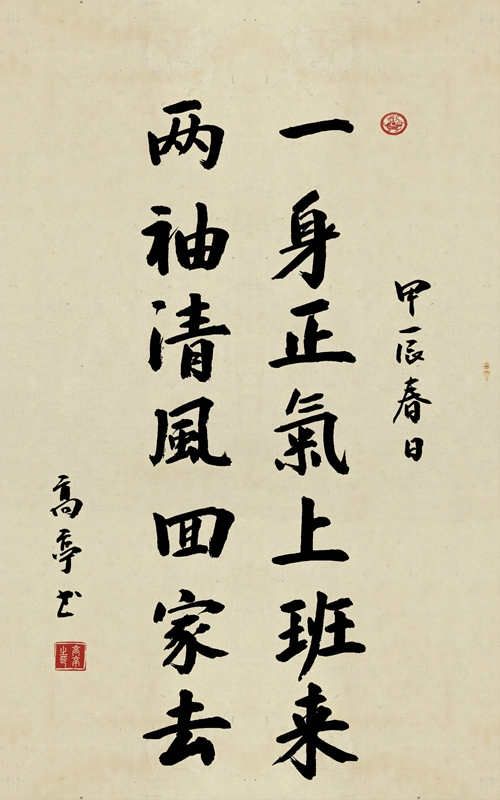 甲辰春日
一身正氣上班来
两袖清風回家去
高亭书
高亭之印